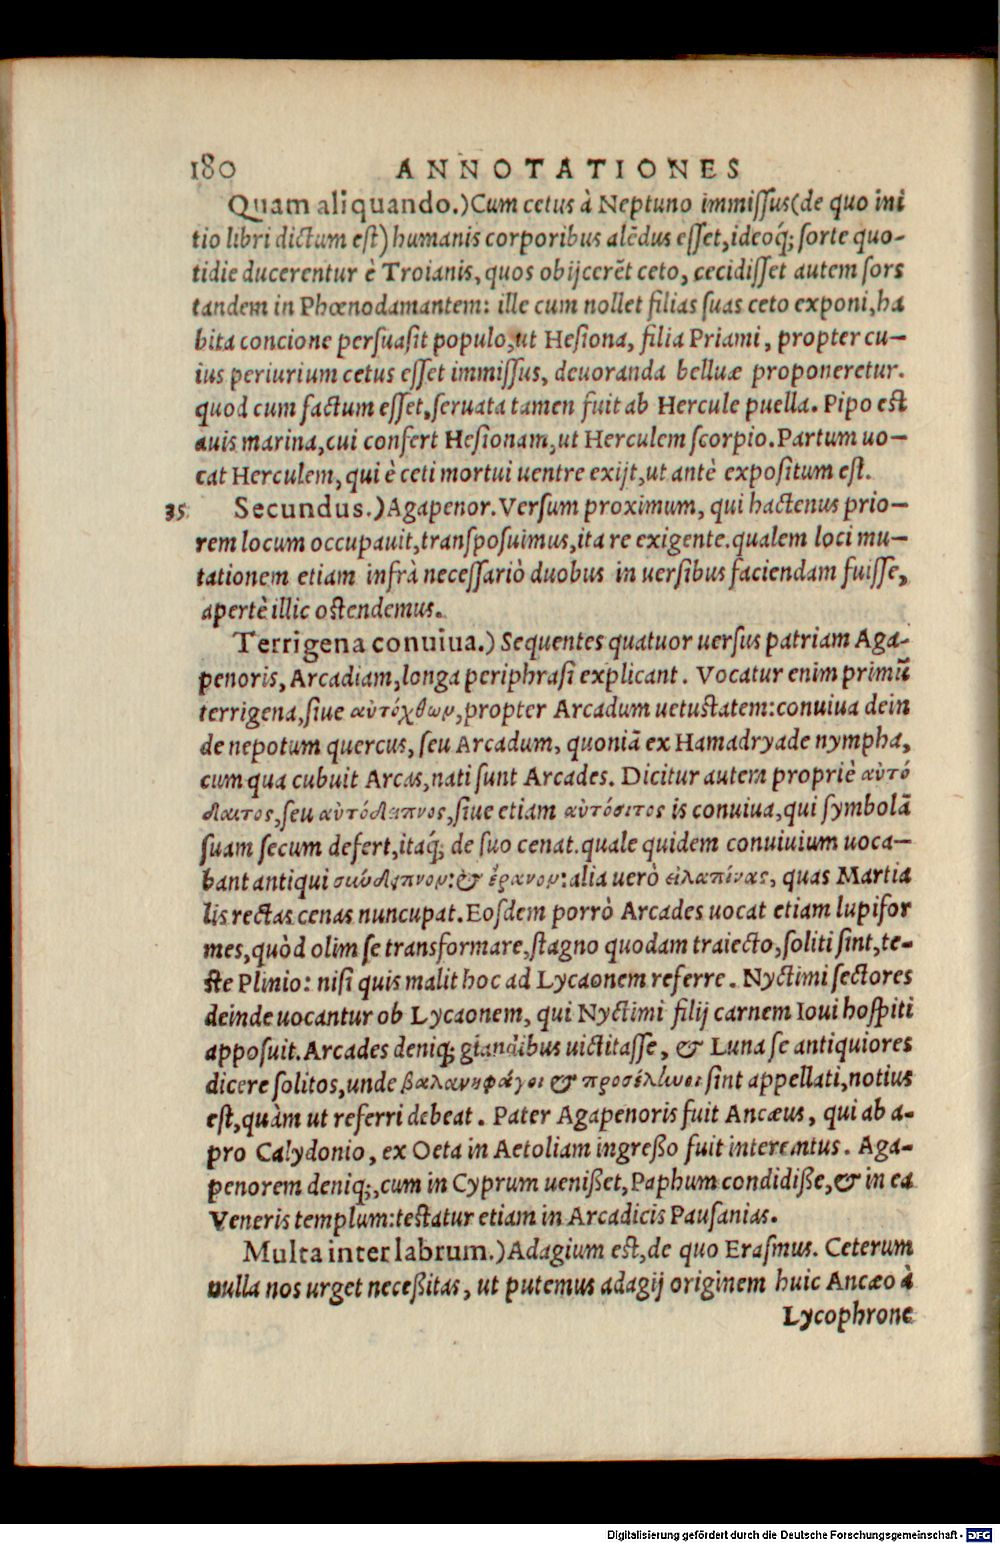 180 ANNOTATIONES
Quam aliquando.) Cum cetus à Neptuno immissus (de quo ini
tio libri dictum est) humanis corporibus alēdus esset, ideoq́; sorte quo-
tidie ducerentur è Troianis, quos obijcerēt ceto, cecidisset autem sors
tandem in Phœnodamantem: ille cum nollet filias suas ceto exponi, ha
bita concione persuasit populo, ut Hesiona, filia Priami, propter cu-
ius periurium cetus esset immissus, deuoranda belluæ proponeretur.
quod cum factum esset, seruata tamen fuit ab Hercule puella. Pipo est
auis marina, cui confert Hesionam, ut Herculem scorpio. Partum uo-
cat Herculem, qui è ceti mortui uentre exijt, ut antè expositum est.
35 Secundus.) Agapenor. Versum proximum, qui hactenus prio-
rem locum occupauit, transposuimus, ita re exigente. qualem loci mu-
tationem etiam infrà necessariò duobus in uersibus faciendam fuisse,
apertè illic ostendemus.
Terrigena conuiua.) Sequentes quatuor uersus patriam Aga-
penoris, Arcadiam, longa periphrasi explicant. Vocatur enim primū
terrigena, siue αὐτόχθων, propter Arcadum uetustatem: conuiua dein
de nepotum quercus, seu Arcadum, quoniā ex Hamadryade nympha,
cum qua cubuit Arcas, nati sunt Arcades. Dicitur autem propriè αὐτό
δαιτος, seu αὐτόδειπνος, siue etiam αὐτόσιτος is conuiua, qui symbolā
suam secum defert, itaq́; de suo cenat. quale quidem conuiuium uoca-
bant antiqui σύνδειπνον: & ἔρανον: alia uerò εἰλαπίνας, quas Martia
lis rectas cenas nuncupat. Eosdem porrò Arcades uocat etiam lupifor
mes, quòd olim se transformare, stagno quodam traiecto, soliti sint, te-
ste Plinio: nisi quis malit hoc ad Lycaonem referre. Nyctimi sectores
deinde uocantur ob Lycaonem, qui Nyctimi filij carnem Ioui hospiti
apposuit. Arcades deniq; glandibus uictitasse, & Luna se antiquiores
dicere solitos, unde βαλανηφάγοι & προσέληνοι sint appellati, notius
est, quàm ut referri debeat. Pater Agapenoris fuit Ancæus, qui ab a-
pro Calydonio, ex Oeta in Aetoliam ingreßo fuit interemtus. Aga-
penorem deniq;, cum in Cyprum uenißet, Paphum condidiße, & in ea
Veneris templum: testatur etiam in Arcadicis Pausanias.
Multa inter labrum.) Adagium est, de quo Erasmus. Ceterum
nulla nos urget neceßitas, ut putemus adagij originem huic Ancæo à
Lycophrone
Digitalisierung gefördert durch die Deutsche Forschungsgemeinschaft - DFG